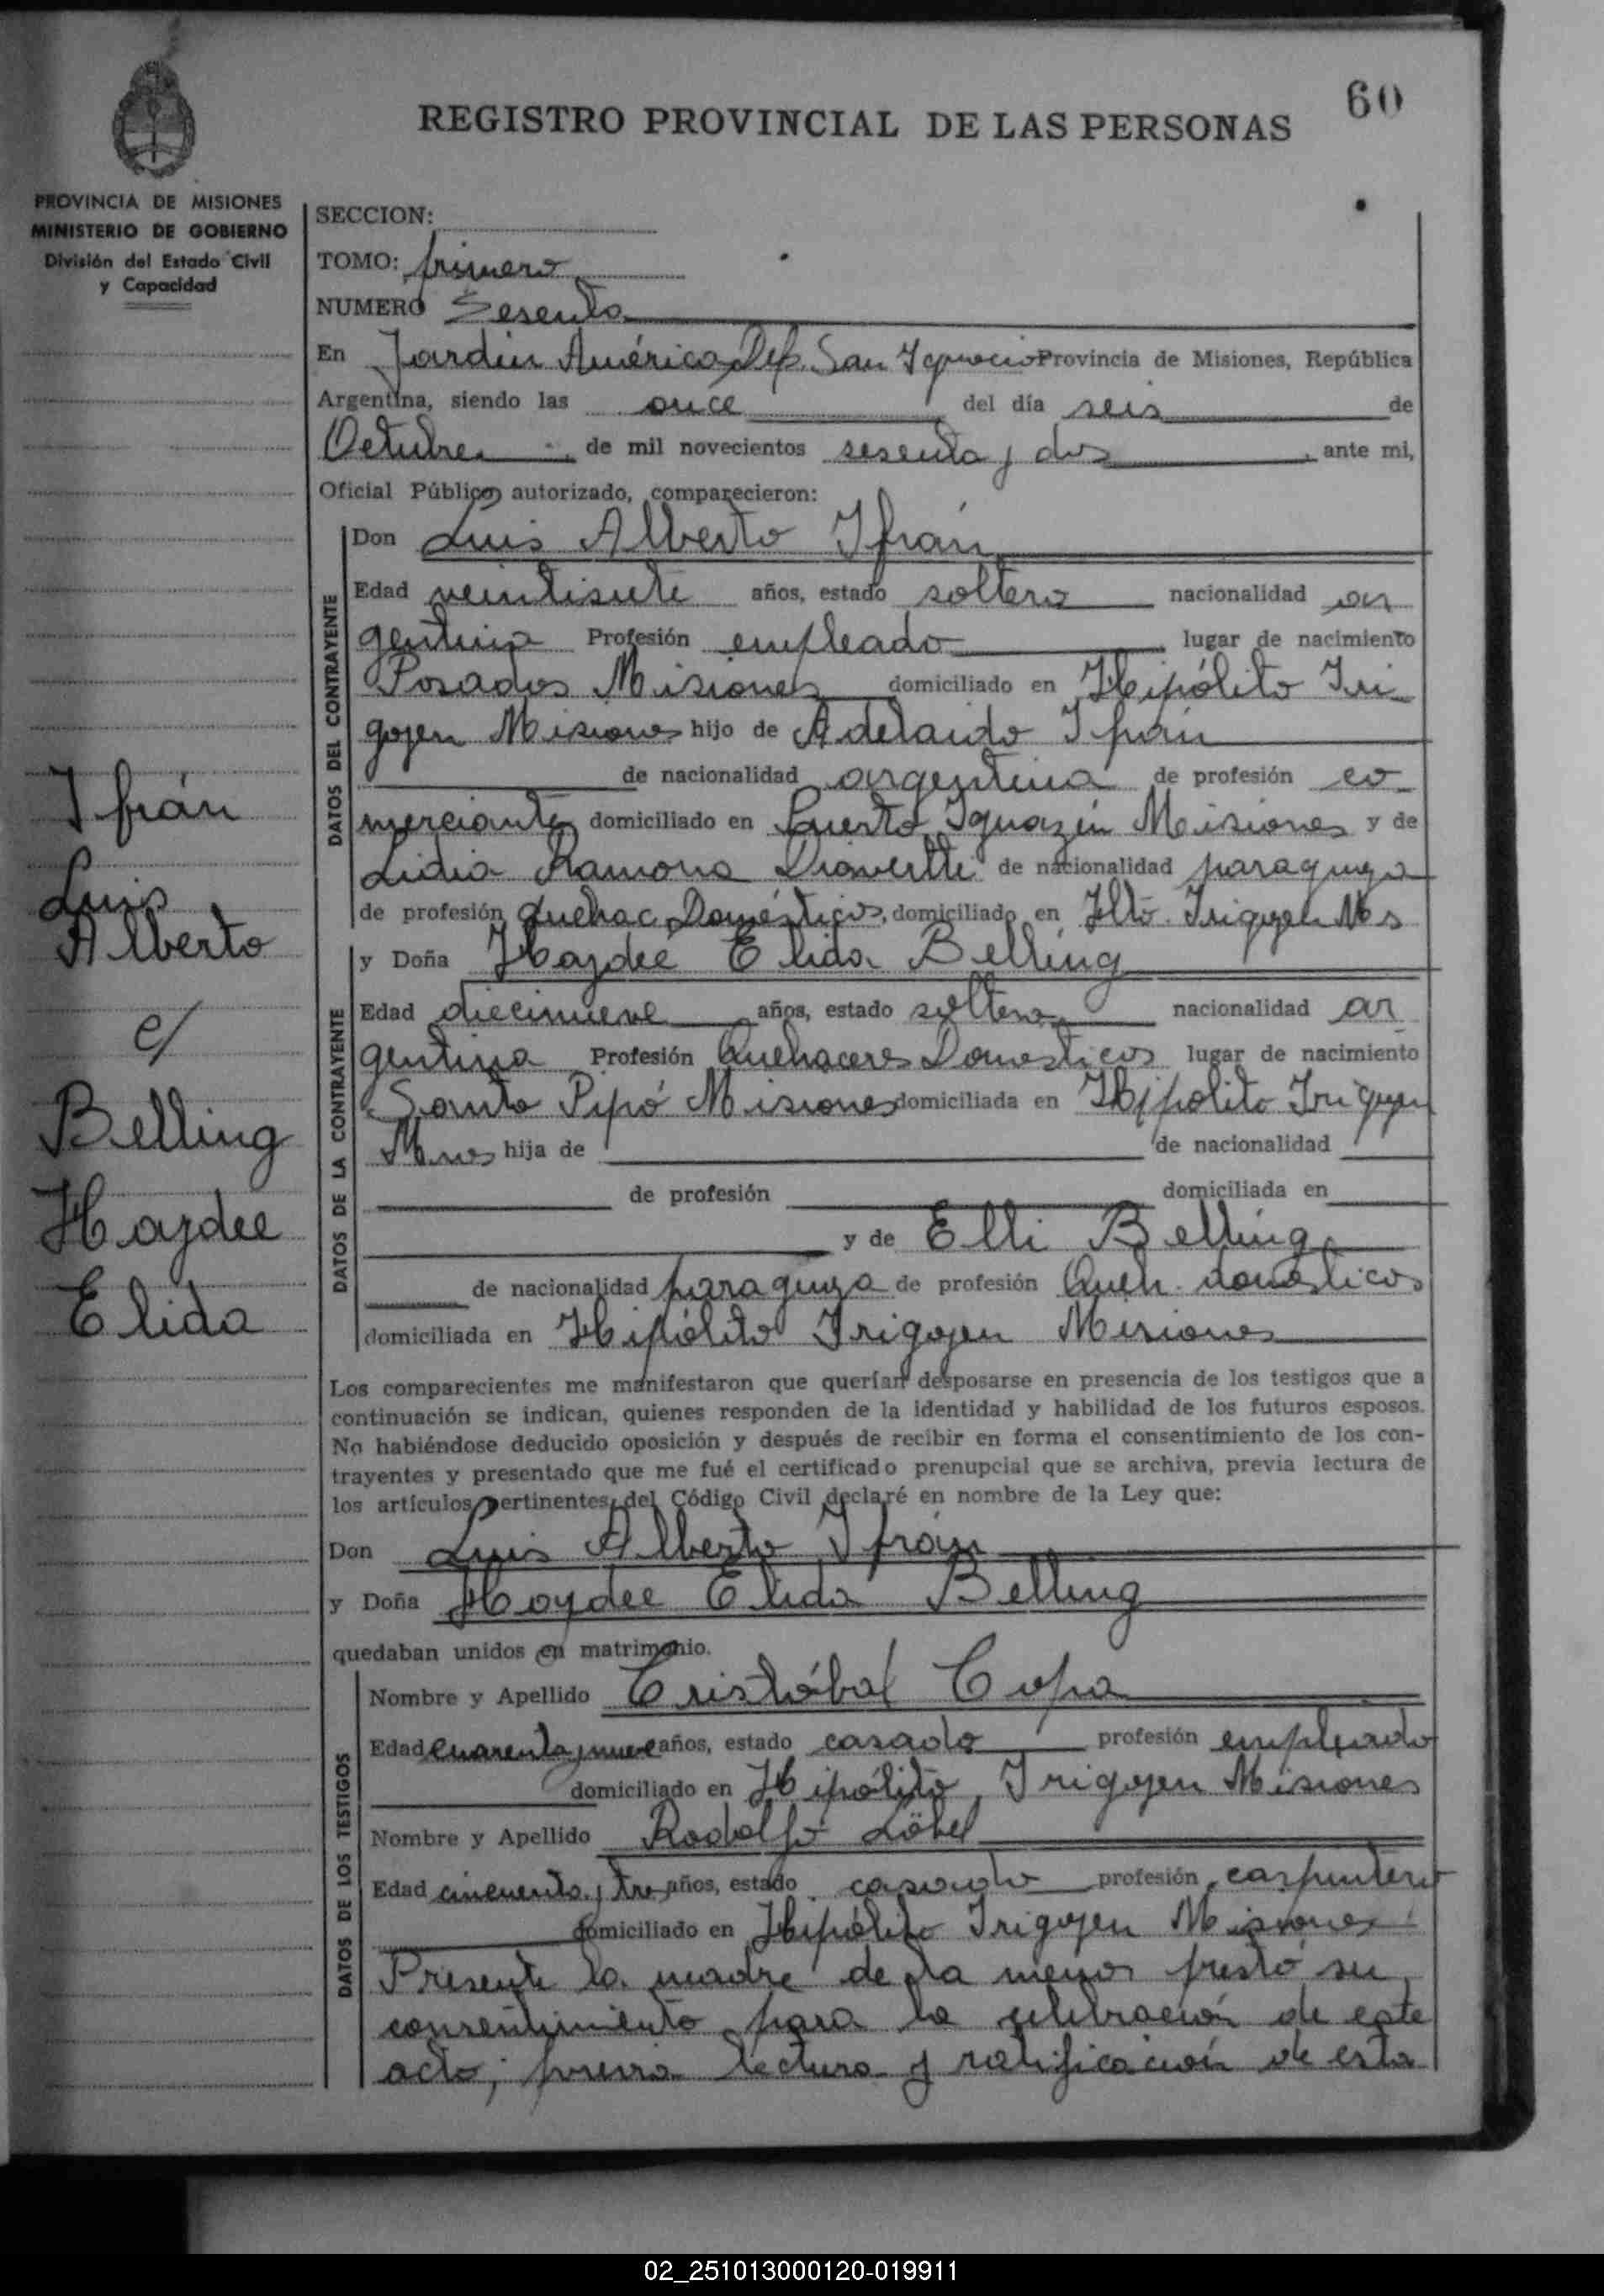 60
REGISTRO PROVINCIAL DE LAS PERSONAS
PROVINCIA DE MISIONES
MINISTERIO DE GOBIERNO
División del Estado Civil
y Capacidad
SECCION:
TOMO: primero
NUMERO Sesenta
En Jardin América Dep. San Ignacio Provincia de Misiones, República
Argentina, siendo las once del día seis de
Octubre de mil novecientos sesenta y dos, ante mi,
Oficial Público autorizado, comparecieron:
DATOS DEL CONTRAYENTE
Don Luis Alberto Ifrán
Edad veintisiete años, estado soltero nacionalidad ar
gentina Profesión empleado lugar de nacimiento
Posadas Misiones domiciliado en Hipólito Iri-
goyen Misiones hijo de Adelaido Ifrán
de nacionalidad argentina de profesión co-
merciante domiciliado en Puerto Iguazú Misiones y de
Lidia Ramona de nacionalidad paraguaya
de profesión Quehac. Domésticos, domiciliado en Hlto. Irigoyen Mns
Ifrán
Luis
Alberto
c/
Belling
Haydee
Elida
DATOS DE LA CONTRAYENTE
y Doña Haydeé Elida Belling
Edad diecinueve años, estado soltera nacionalidad ar
gentina Profesión Quehaceres Domesticos lugar de nacimiento
Santo Pipó Misiones domiciliada en Hipólito Irigoyen
Mnes hija de de nacionalidad
de profesión domiciliada en
y de Elli Belling
de nacionalidad paraguaya de profesión Queh. domésticos
domiciliada en Hipólito Irigoyen Misiones
Los comparecientes me manifestaron que querían desposarse en presencia de los testigos que a
continuación se indican, quienes responden de la identidad y habilidad de los futuros esposos.
No habiéndose deducido oposición y después de recibir en forma el consentimiento de los con-
trayentes y presentado que me fué el certificado prenupcial que se archiva, previa lectura de
los artículos pertinentes del Código Civil declaré en nombre de la Ley que:
Don Luis Alberto Ifrán
y Doña Haydee Elida Belling
quedaban unidos en matrimonio.
DATOS DE LOS TESTIGOS
Nombre y Apellido Cristóbal Copa
Edad cuarenta y nueve años, estado casado profesión empleado
domiciliado en Hipólito Irigoyen Misiones
Nombre y Apellido Rodolfo Löbel
Edad cincuenta y tres años, estado casado profesión carpintero
domiciliado en Hipólito Irigoyen Misiones
Presente la madre de la menor prestó su
consentimiento para la celebración de este
acto; previa lectura y ratificación de esta
02_251013000120-019911